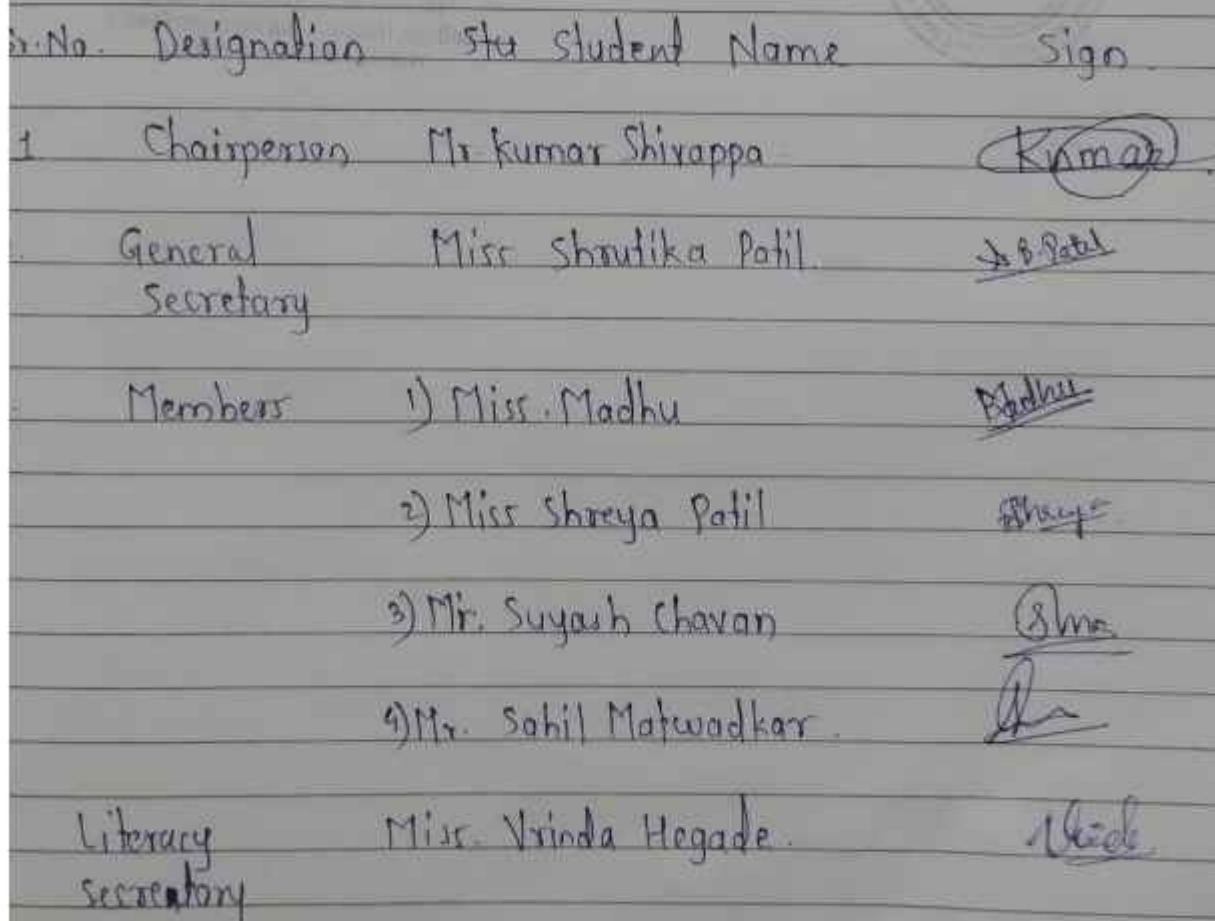 Sr.No. Designation Stu Student Name Sign
1 Chairperson Mr. Kumar Shivappa Kumar
General Miss Shrutika Patil. B. Patil
Secretary
Members 1) Miss. Madhu Madhu
2) Miss Shreya Patil Shreya
3) Mr. Suyash Chavan
4) Mr. Sahil Matwadkar.
Literacy Miss. Vrinda Hegade.
secreatory